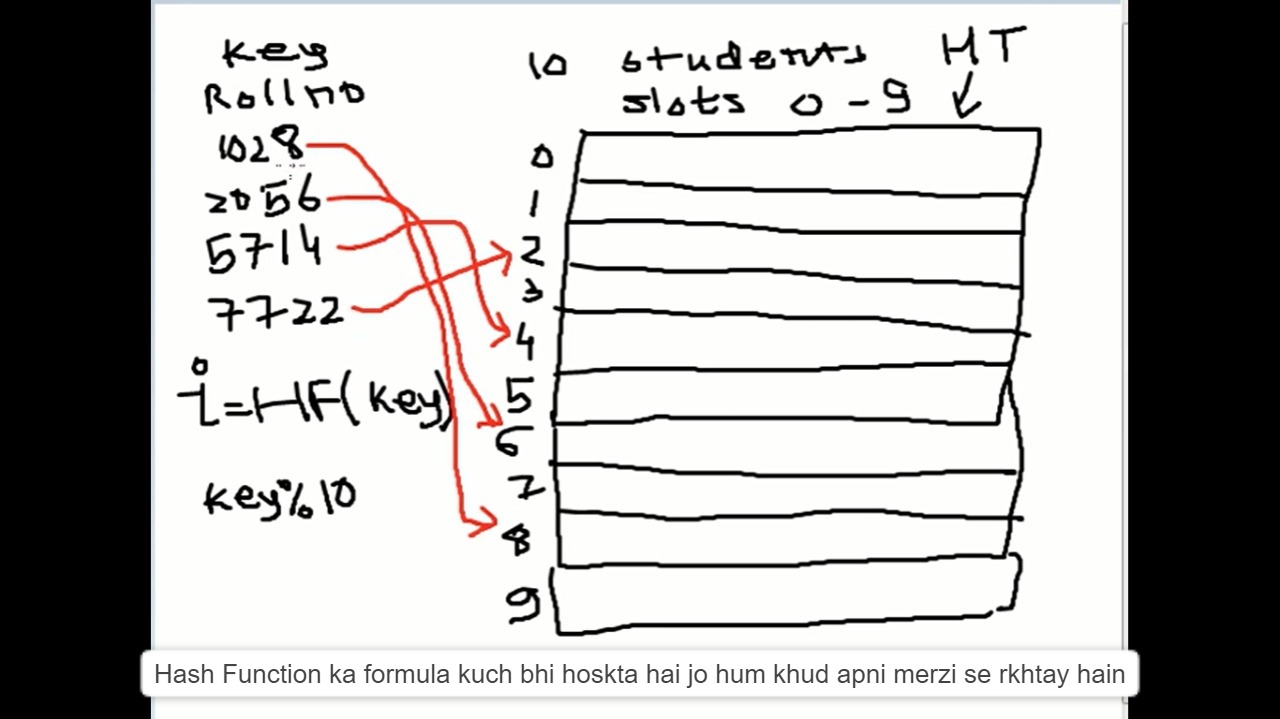 Key
Rollno
1028
2056
5714
7722
i=HF(key)
key%10
10 students HT
slots 0-9
0
1
2
3
4
5
6
7
8
9
Hash Function ka formula kuch bhi hoskta hai jo hum khud apni merzi se rkhtay hain